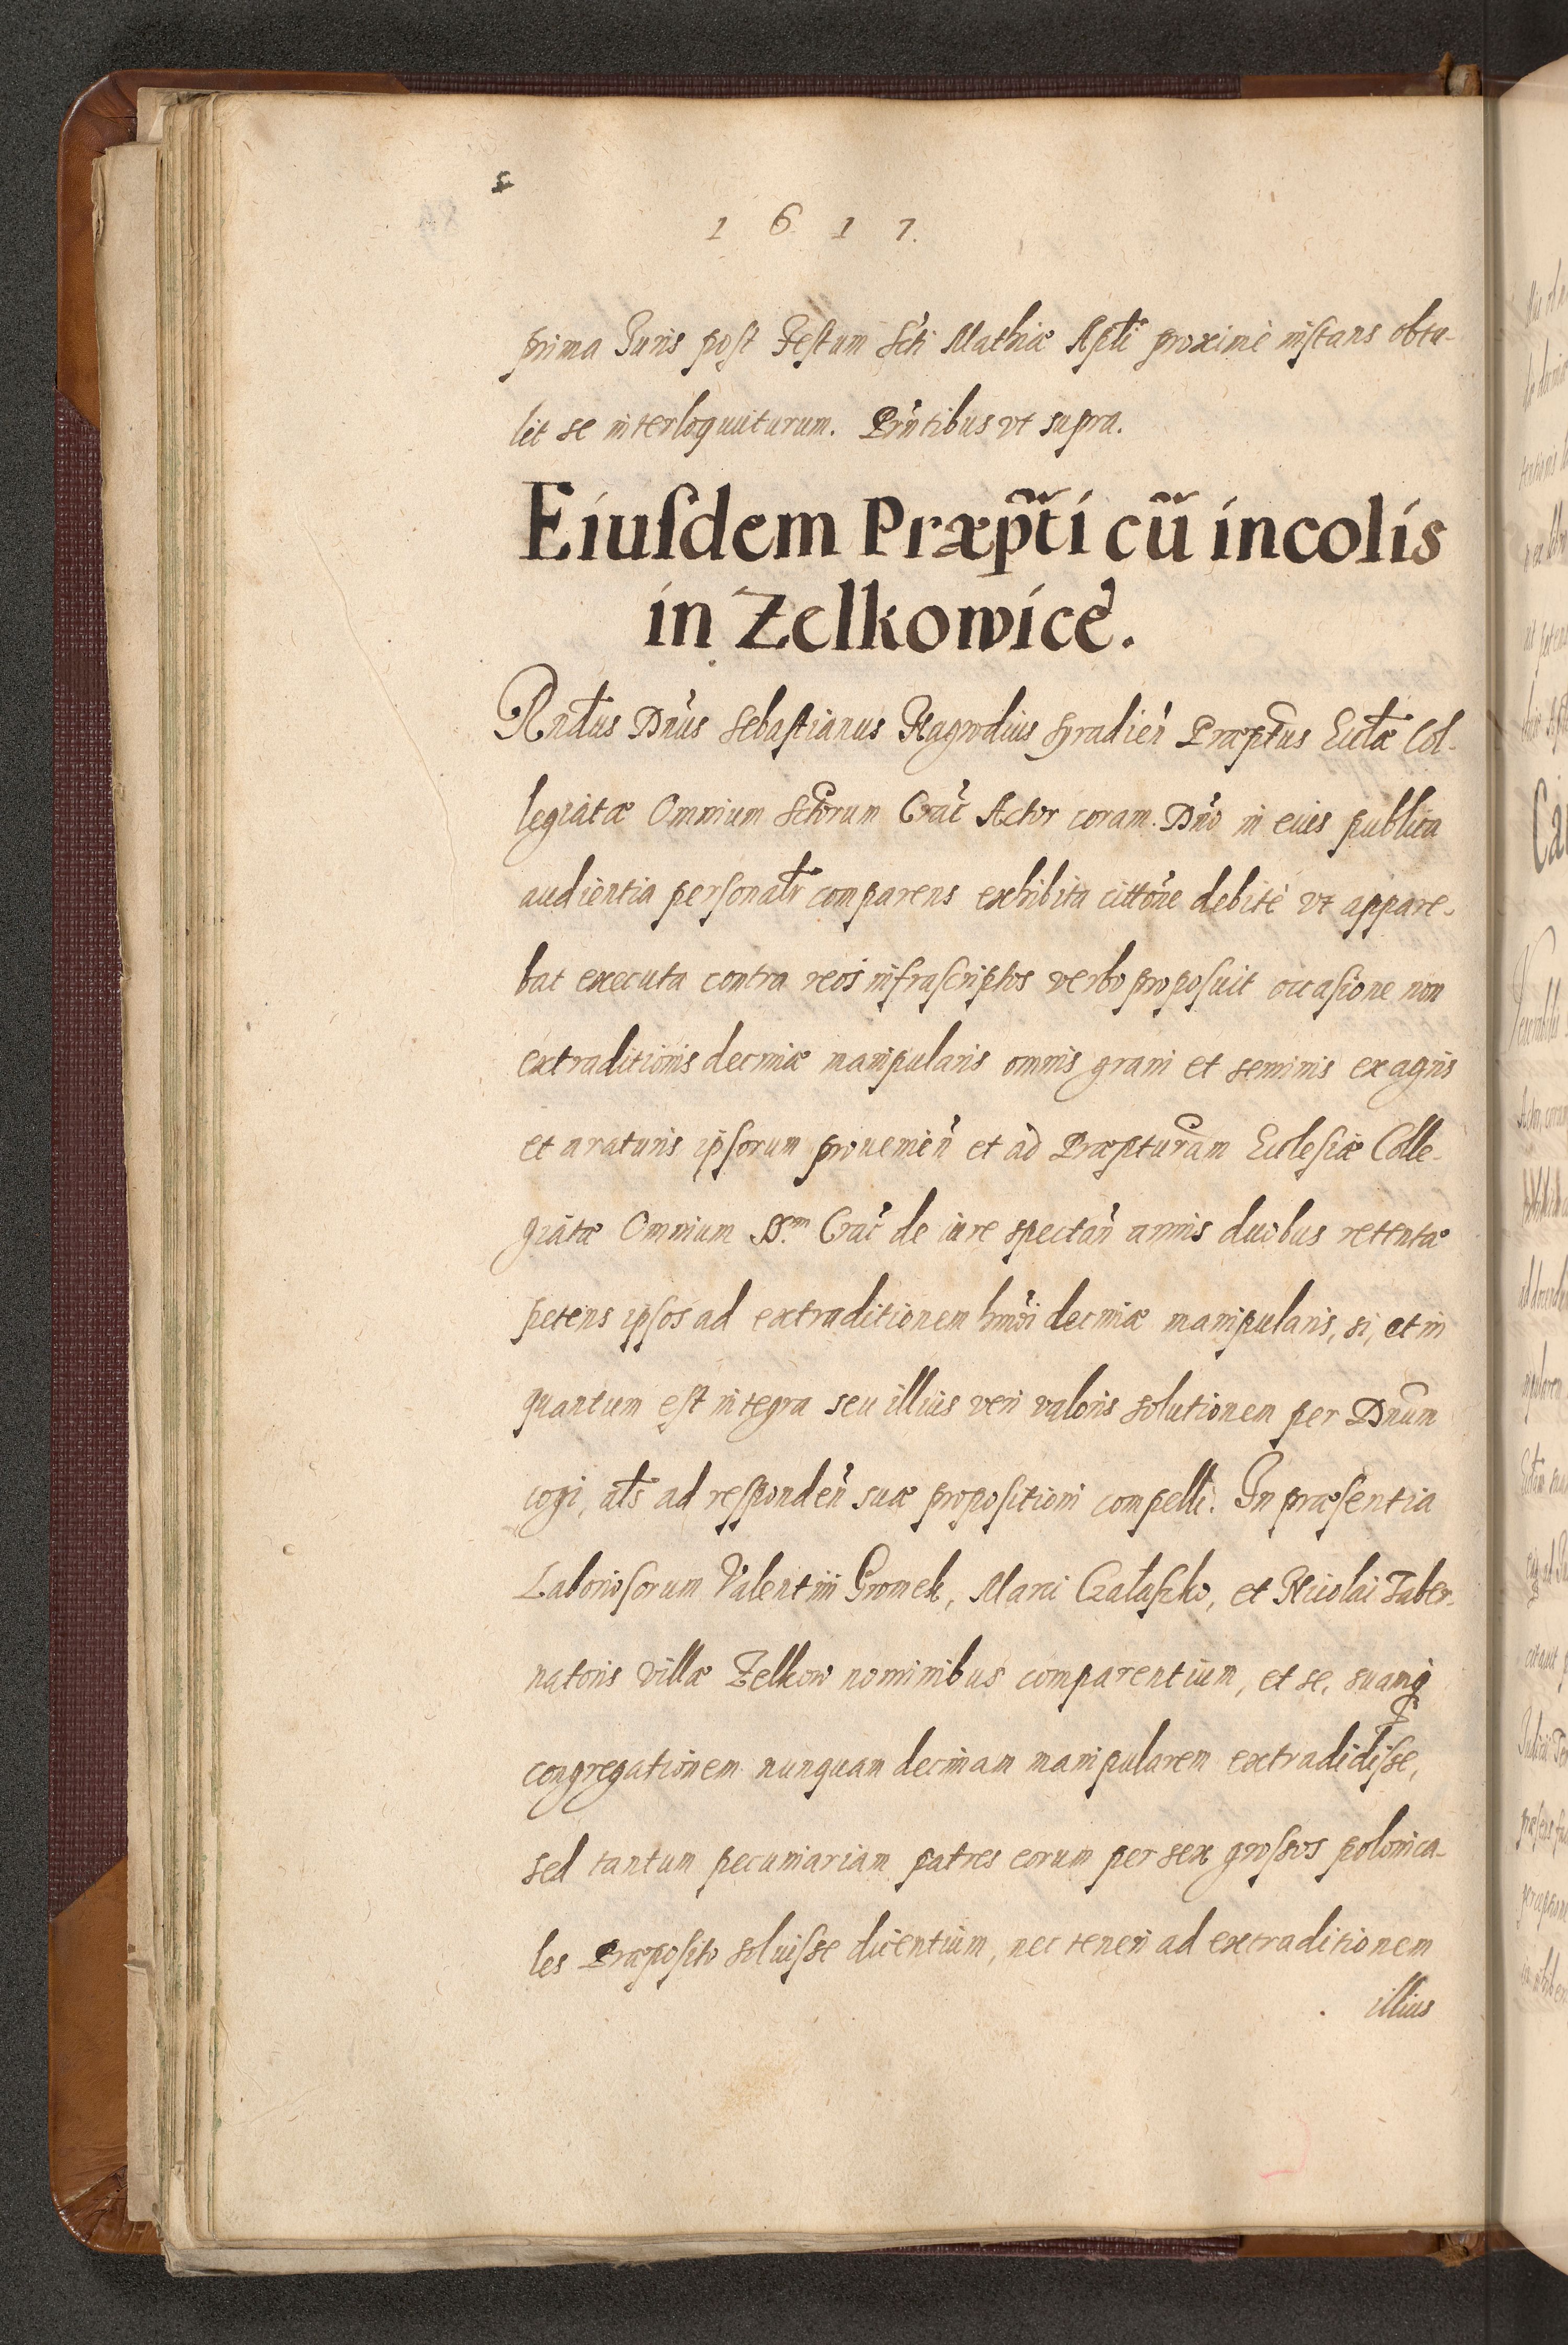 1 6 1 7.
prima Juris post Festum Scti Mathiæ Apli proximè instans obtu-
lit se interloquuturum. Prñtibus vt supra.
Eiusdem Præpti cũ incolis
in Zelkowicè.
Rndus Dnus Sebastianus Nagrodius Syradieñ Præptus Ecclæ Col-
legiatæ Omnium Sctorum Crac Actor coram Dno in eius publica
audientia personaltr comparens exhibita cittone debitè vt appare-
bat executa contra reos infrascriptos verbo proposuit occasione non
extraditionis decimæ manipularis omnis grani et seminis ex agris
et araturis ipsorum prouenieñ et ad Præpturam Ecclesiæ Colle-
giatæ Omnium SS.m Crac de iure spectañ annis duobus retentæ
petens ipsos ad extraditionem hmoi decimæ manipularis, si, et in
quantum est integra seu illius veri valoris solutionem per Dnum
cogi, als ad respondeñ suæ propositioni compelli. In præsentia
Laboriosorum Valentini Gromek, Marci Czałaszko, et Nicolai Taber-
natoris villæ Zelkow nominibus comparentium, et se, suamq
congregationem nunquam decimam manipularem extradidisse,
sed tantum pecuniariam patres eorum per sex grossos polonica-
les Præposito soluisse dicentium, nec teneri ad extraditionem
illius